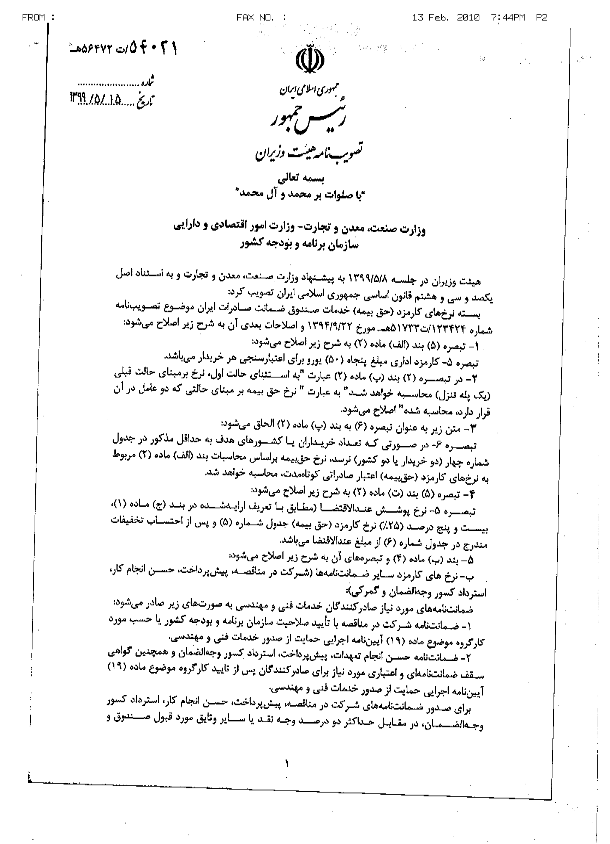 FROM : FAX NO. : 13 Feb. 2010 7:44PM P2
۵۴۰۲۱/ت۵۶۴۷۲هـ
شماره
تاریخ ۱۳۹۹/۵/۱۵
جمهوری اسلامی ایران
رئیس جمهور
تصویب نامه هیئت وزیران
بسمه تعالی
"با صلوات بر محمد و آل محمد"
وزارت صنعت، معدن و تجارت- وزارت امور اقتصادی و دارایی
سازمان برنامه و بودجه کشور
هیئت وزیران در جلسه ۱۳۹۹/۵/۸ به پیشنهاد وزارت صنعت، معدن و تجارت و به استناد اصل
یکصد و سی و هشتم قانون اساسی جمهوری اسلامی ایران تصویب کرد:
بسته نرخ‌های کارمزد (حق بیمه) خدمات صندوق ضمانت صادرات ایران موضوع تصویب‌نامه
شماره ۱۲۳۴۲۴/ت۵۱۷۳۳هـ مورخ ۱۳۹۴/۹/۲۲ و اصلاحات بعدی آن به شرح زیر اصلاح می‌شود:
۱- تبصره (۵) بند (الف) ماده (۲) به شرح زیر اصلاح می‌شود:
تبصره ۵- کارمزد اداری مبلغ پنجاه (۵۰) یورو برای اعتبارسنجی هر خریدار می‌باشد.
۲- در تبصره (۲) بند (پ) ماده (۲) عبارت "به استثنای حالت اول، نرخ برمبنای حالت قبلی
(یک پله تنزل) محاسبه خواهد شد" به عبارت "نرخ حق بیمه بر مبنای حالتی که دو عامل در آن
قرار دارد، محاسبه شده" اصلاح می‌شود.
۳- متن زیر به عنوان تبصره (۶) به بند (پ) ماده (۲) الحاق می‌شود:
تبصره ۶- در صورتی که تعداد خریداران یا کشورهای هدف به حداقل مذکور در جدول
شماره چهار (دو خریدار یا دو کشور) نرسد، نرخ حق‌بیمه براساس محاسبات بند (الف) ماده (۲) مربوط
به نرخ‌های کارمزد (حق‌بیمه) اعتبار صادراتی کوتاه‌مدت، محاسبه خواهد شد.
۴- تبصره (۵) بند (ت) ماده (۲) به شرح زیر اصلاح می‌شود:
تبصره ۵- نرخ پوشش عندالاقتضا (مطابق با تعریف ارایه‌شده در بند (ج) ماده (۱)،
بیست و پنج درصد (۲۵٪) نرخ کارمزد (حق بیمه) جدول شماره (۵) و پس از احتساب تخفیفات
مندرج در جدول شماره (۶) از مبلغ عندالاقتضا می‌باشد.
۵- بند (پ) ماده (۴) و تبصره‌های آن به شرح زیر اصلاح می‌شود:
ب- نرخ های کارمزد سایر ضمانت‌نامه‌ها (شرکت در مناقصه، پیش‌پرداخت، حسن انجام کار،
استرداد کسور وجه‌الضمان و گمرکی):
ضمانت‌نامه‌های مورد نیاز صادرکنندگان خدمات فنی و مهندسی به صورت‌های زیر صادر می‌شود:
۱- ضمانت‌نامه شرکت در مناقصه با تأیید صلاحیت سازمان برنامه و بودجه کشور یا حسب مورد
کارگروه موضوع ماده (۱۹) آیین‌نامه اجرایی حمایت از صدور خدمات فنی و مهندسی.
۲- ضمانت‌نامه حسن انجام تعهدات، پیش‌پرداخت، استرداد کسور وجه‌الضمان و همچنین گواهی
سقف ضمانت‌نامه‌ای و اعتباری مورد نیاز برای صادرکنندگان پس از تایید کارگروه موضوع ماده (۱۹)
آیین‌نامه اجرایی حمایت از صدور خدمات فنی و مهندسی.
برای صدور ضمانت‌نامه‌های شرکت در مناقصه، پیش‌پرداخت، حسن انجام کار، استرداد کسور
وجه‌الضمان، در مقابل حداکثر دو درصد وجه نقد یا سایر وثایق مورد قبول صندوق و
۱